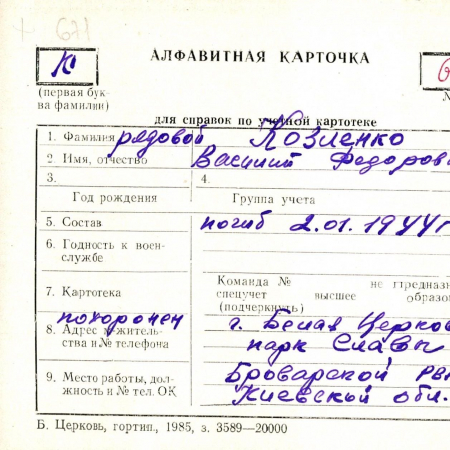 + 671
К
АЛФАВИТНАЯ КАРТОЧКА
(первая бук-
ва фамилии)
для справок по учетной картотеке
1. Фамилия рядовой Козленко
2. Имя, отчество Василий Федоров
3.
4.
Год рождения
Группа учета
5. Состав погиб 2.01.1944г
6. Годность к воен-
службе
7. Картотека
Команда № не предназн
спецучет высшее образо
(подчеркнуть)
похоронен г. Белая Церков
8. Адрес житель-
ства и № телефона
парк Славы
9. Место работы, дол-
жность и № тел. ОК
Броварской РВ
Киевской обл.
Б. Церковь, гортип., 1985, з. 3589—20000